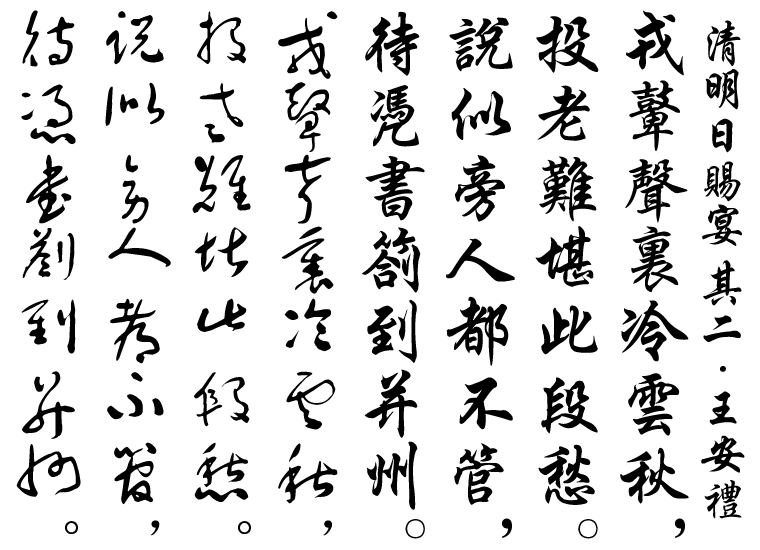 清明日賜宴 其二・王安禮
戎鼙聲裏冷雲秋，
投老難堪此段愁。
說似旁人都不管，
待凴書箚到并州。
戎鼙聲裏冷雲秋，
投老難堪此段愁。
說似旁人都不管，
待憑書劄到并州。